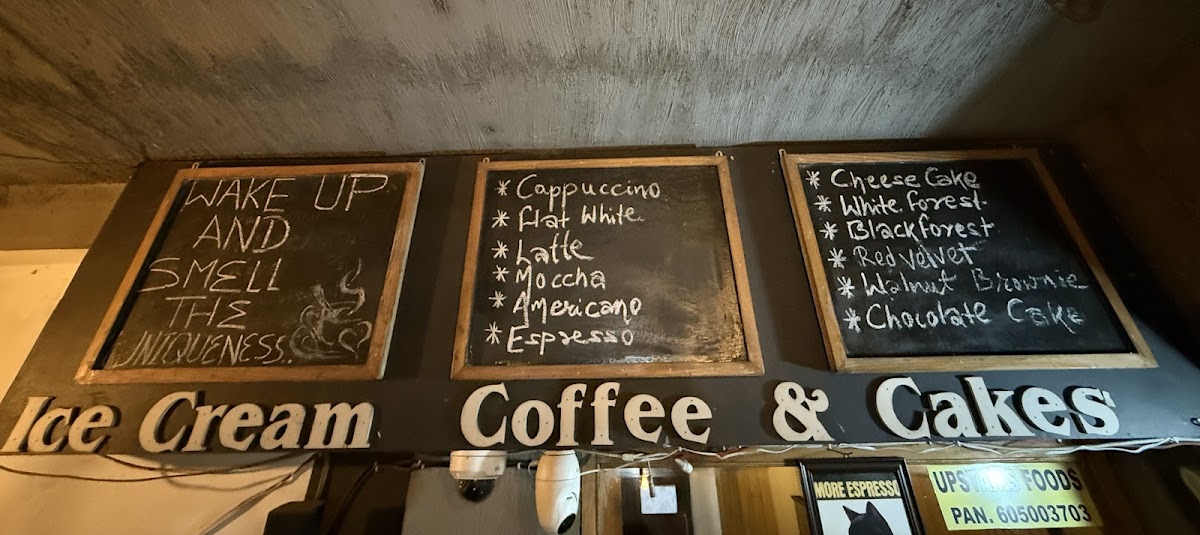 WAKE UP
AND
SMELL
THE
UNIQUENESS.
* Cappuccino
* Flat White
* Latte
* Moccha
* Americano
* Espresso
* Cheese Cake
* White forest
* Black forest
* Red velvet
* Walnut Brownie
* Chocolate Cake
Ice Cream Coffee & Cakes
MORE ESPRESSO
UPSTAIRS FOODS
PAN. 605003703